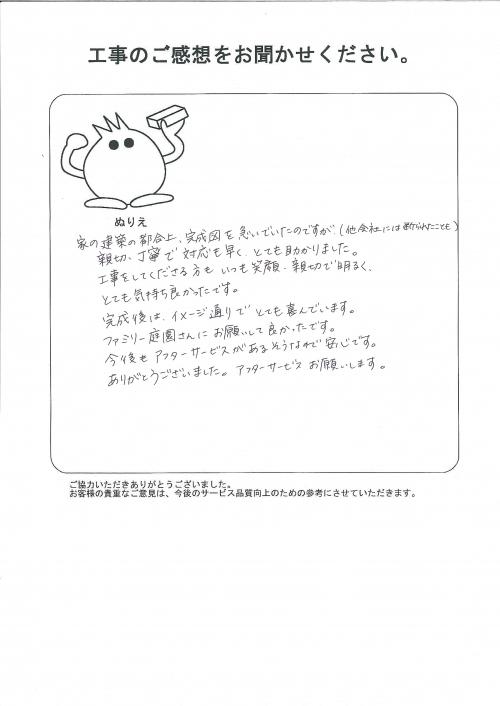 工事のご感想をお聞かせください。
ぬりえ
家の建築の都合上、完成図を急いでいたのですが(他会社には断られたことも)
親切、丁寧で対応も早く、とても助かりました。
工事をしてくださる方もいつも笑顔、親切で明るく、
とても気持ち良かったです。
完成後は、イメージ通りでとても喜んでいます。
ファミリー庭園さんにお願いして良かったです。
今後もアフターサービスがあるそうなので安心です。
ありがとうございました。アフターサービスお願いします。
ご協力いただきありがとうございました。
お客様の貴重なご意見は、今後のサービス品質向上のための参考にさせていただきます。